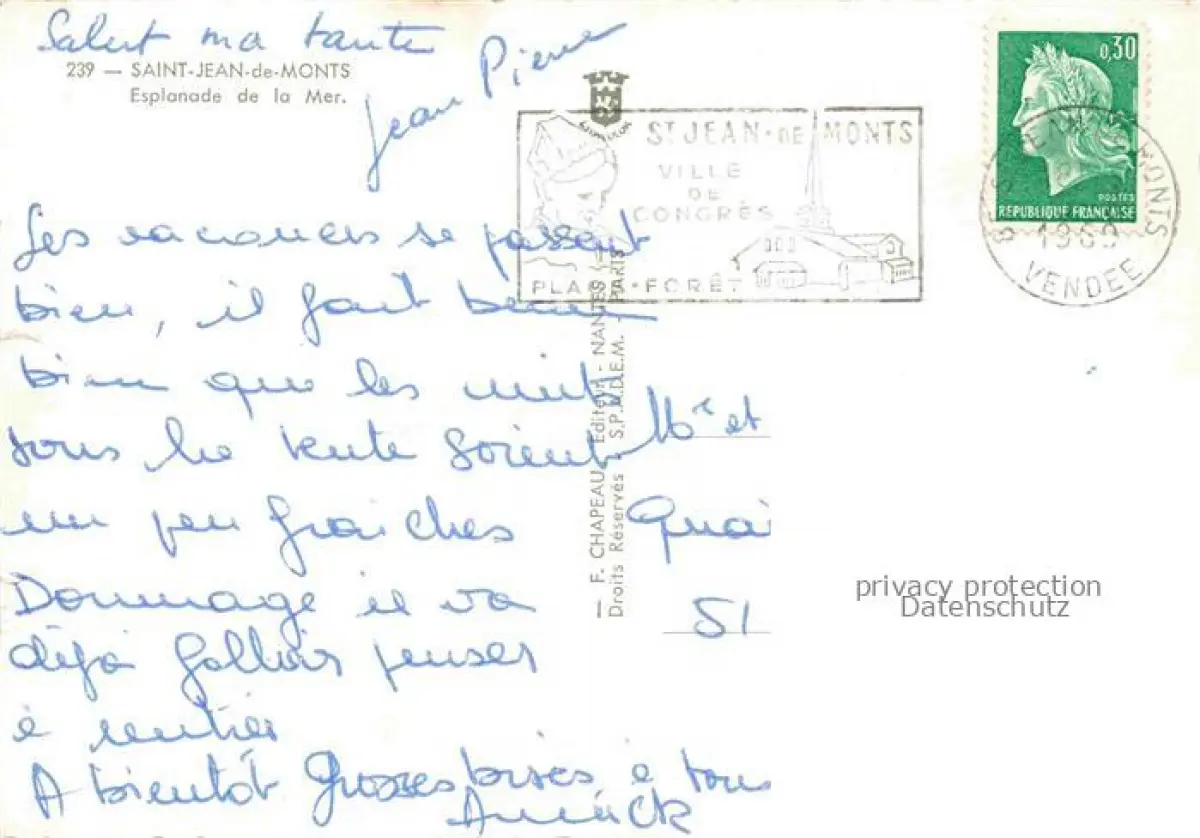 Salut ma tante
Jean Pierre
239 — SAINT-JEAN-de-MONTS
Esplanade de la Mer.
Les vacances se passent
bien, il fait beau
bien que les nuits
sous la tente soient
un peu fraiches
Dommage il va
déjà falloir penser
à rentrer
A bientôt Grosses bises à tous
Annick
— F. CHAPEAU, Editeur - NANTES
Droits Réservés - S.P.A.D.E.M. - PARIS
ST JEAN-DE MONTS
VILLE
DE
CONGRÈS
PLAGE - FORÊT
0,30
POSTES
REPUBLIQUE FRANÇAISE
MONTS
1969
VENDEE
Mr et
Quai
51
privacy protection
Datenschutz